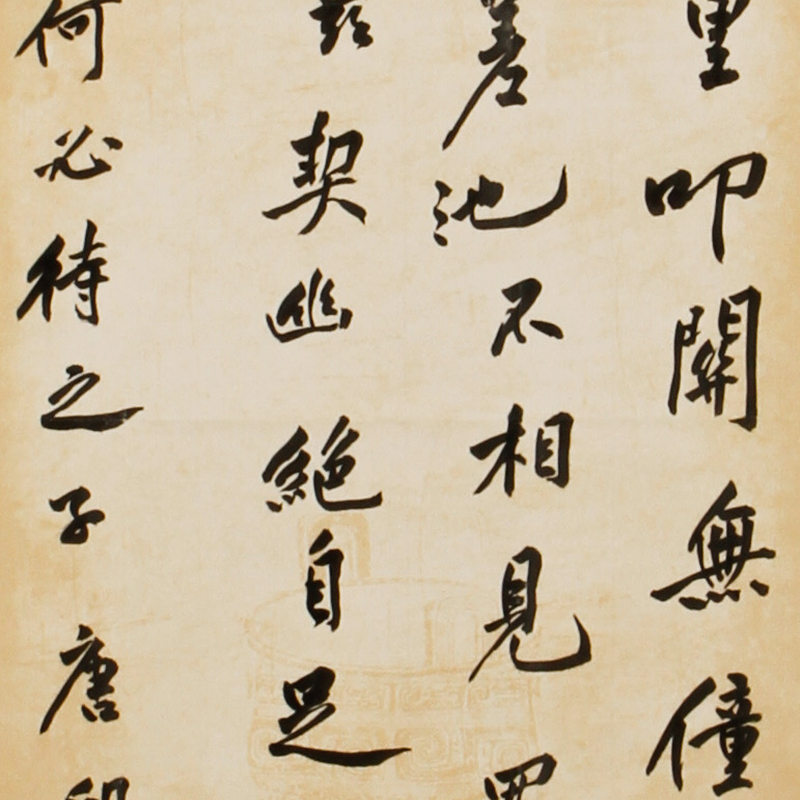 里叩關無僮
差池不相見
茲契幽絕自足
何必待之子唐